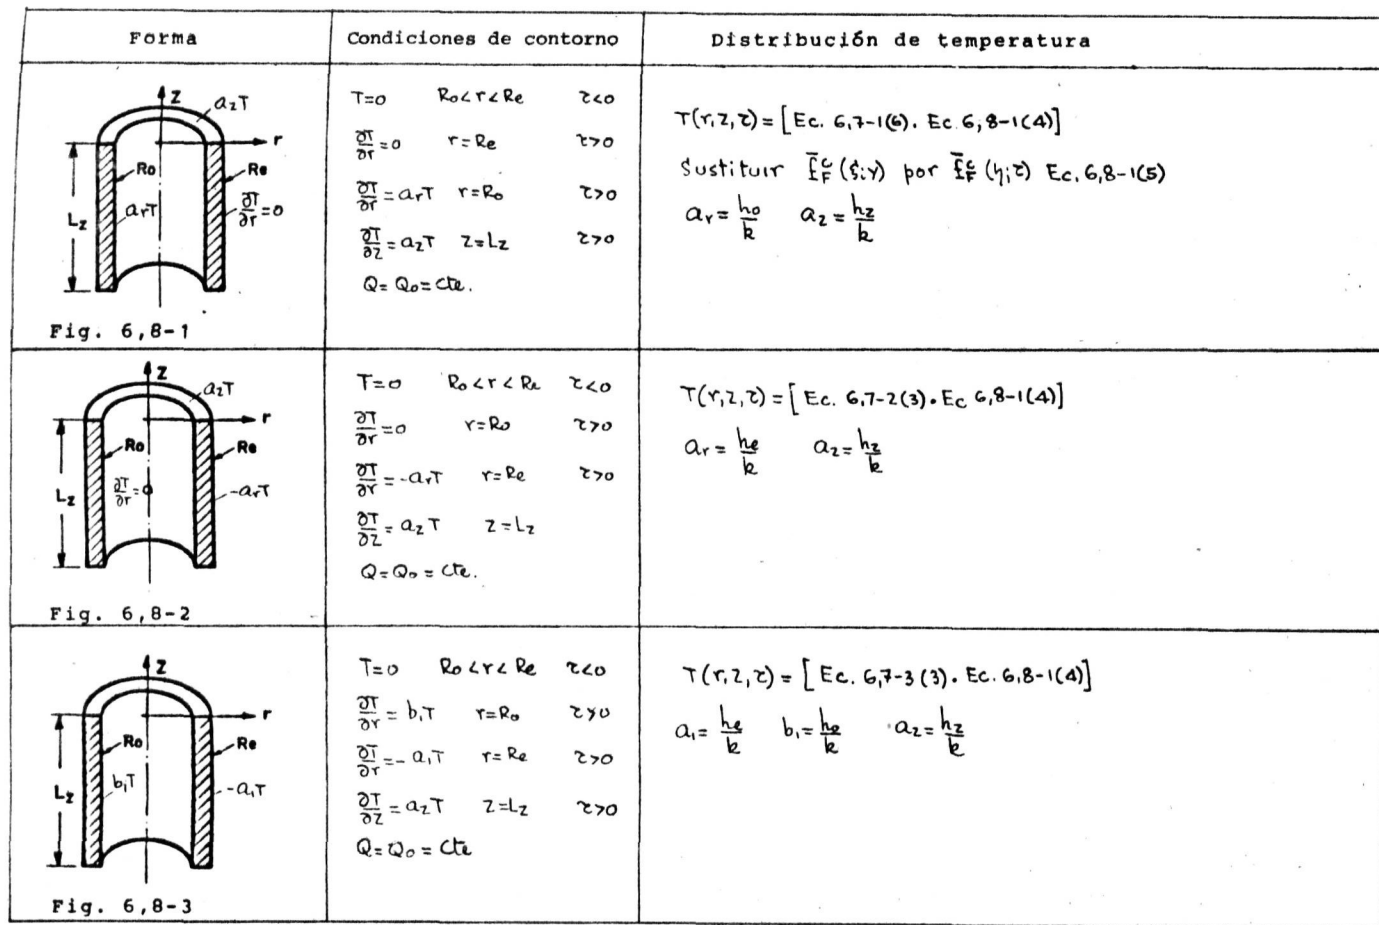 Forma
Condiciones de contorno
Distribución de temperatura
Z
a₂T
r
Ro
Re
Lz
aᵣT
∂T/∂r=0
Fig. 6,8-1
T=0 Ro<r<Re τ<0
∂T/∂r=0 r=Re τ>0
∂T/∂r=aᵣT r=Ro τ>0
∂T/∂z=a₂T z=Lz τ>0
Q=Qo=cte.
T(r,z,τ)=[Ec. 6,7-1(6). Ec. 6,8-1(4)]
Sustituir por Ec. 6,8-1(5)
aᵣ=ho/k a₂=hz/k
Z
a₂T
r
Ro
Re
Lz
∂T/∂r=0
-aᵣT
Fig. 6,8-2
T=0 Ro<r<Re τ<0
∂T/∂r=0 r=Ro τ>0
∂T/∂r=-aᵣT r=Re τ>0
∂T/∂z=a₂T z=Lz
Q=Qo=cte.
T(r,z,τ)=[Ec. 6,7-2(3). Ec 6,8-1(4)]
aᵣ=he/k a₂=hz/k
Z
r
Ro
Re
Lz
b₁T
-a₁T
Fig. 6,8-3
T=0 Ro<r<Re τ<0
∂T/∂r=b₁T r=Ro τ>0
∂T/∂r=-a₁T r=Re τ>0
∂T/∂z=a₂T z=Lz τ>0
Q=Qo=cte
T(r,z,τ)=[Ec. 6,7-3(3). Ec. 6,8-1(4)]
a₁=he/k b₁=ho/k a₂=hz/k